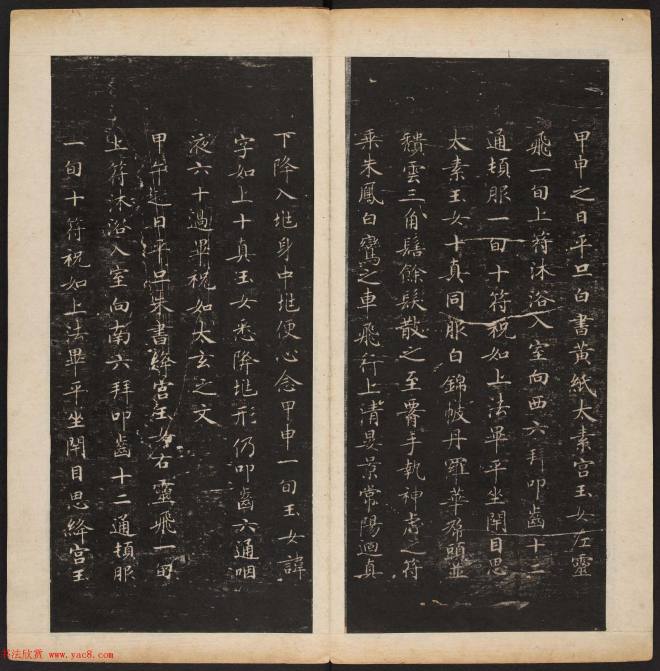 甲申之日平旦白書黃紙太素宮玉女左靈
飛一旬上符沐浴入室向西六拜叩齒十二
通頓服一旬十符祝如上法畢平坐閉目思
太素玉女十真同服白錦帔丹羅華帬頭並
頹雲三角髻餘髮散之至署手執神虎之符
乘朱鳳白鸞之車飛行上清晏景常陽迴真
下降入地身中地便心念甲申一旬玉女諱
字如上十真玉女悉降地形仍叩齒六通咽
液六十過畢祝如太玄之文
甲午之日平旦朱書絳宮玉女右靈飛一旬
上符沐浴入室向南六拜叩齒十二通頓服
一旬十符祝如上法畢平坐閉目思絳宮玉
书法欣赏 www.yac8.com